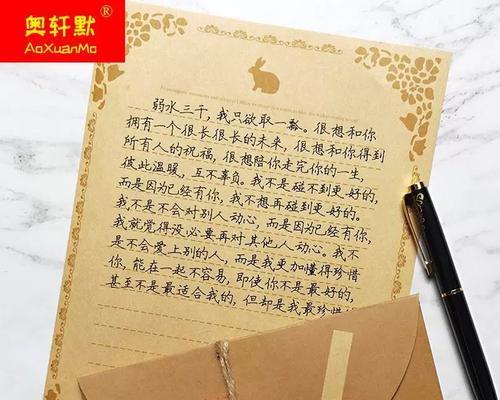 奥轩默®
AoXuanMo
弱水三千，我只欲取一瓢。很想和你
拥有一个很长很长的未来，很想和你得到
所有人的祝福，很想陪你走完你的一生，
彼此温暖，互不辜负。我不是碰不到更好的，
而是因为已经有你，我不想再碰到更好的。
我不是不会对别人动心，而是因为已经有你，
我就觉得没必要再对其他人动心。我不
是不会爱上别的人，而是我更加懂得珍惜
你，能在一起不容易，即使你不是最好的，
甚至不是最适合我的，但却是我最珍惜